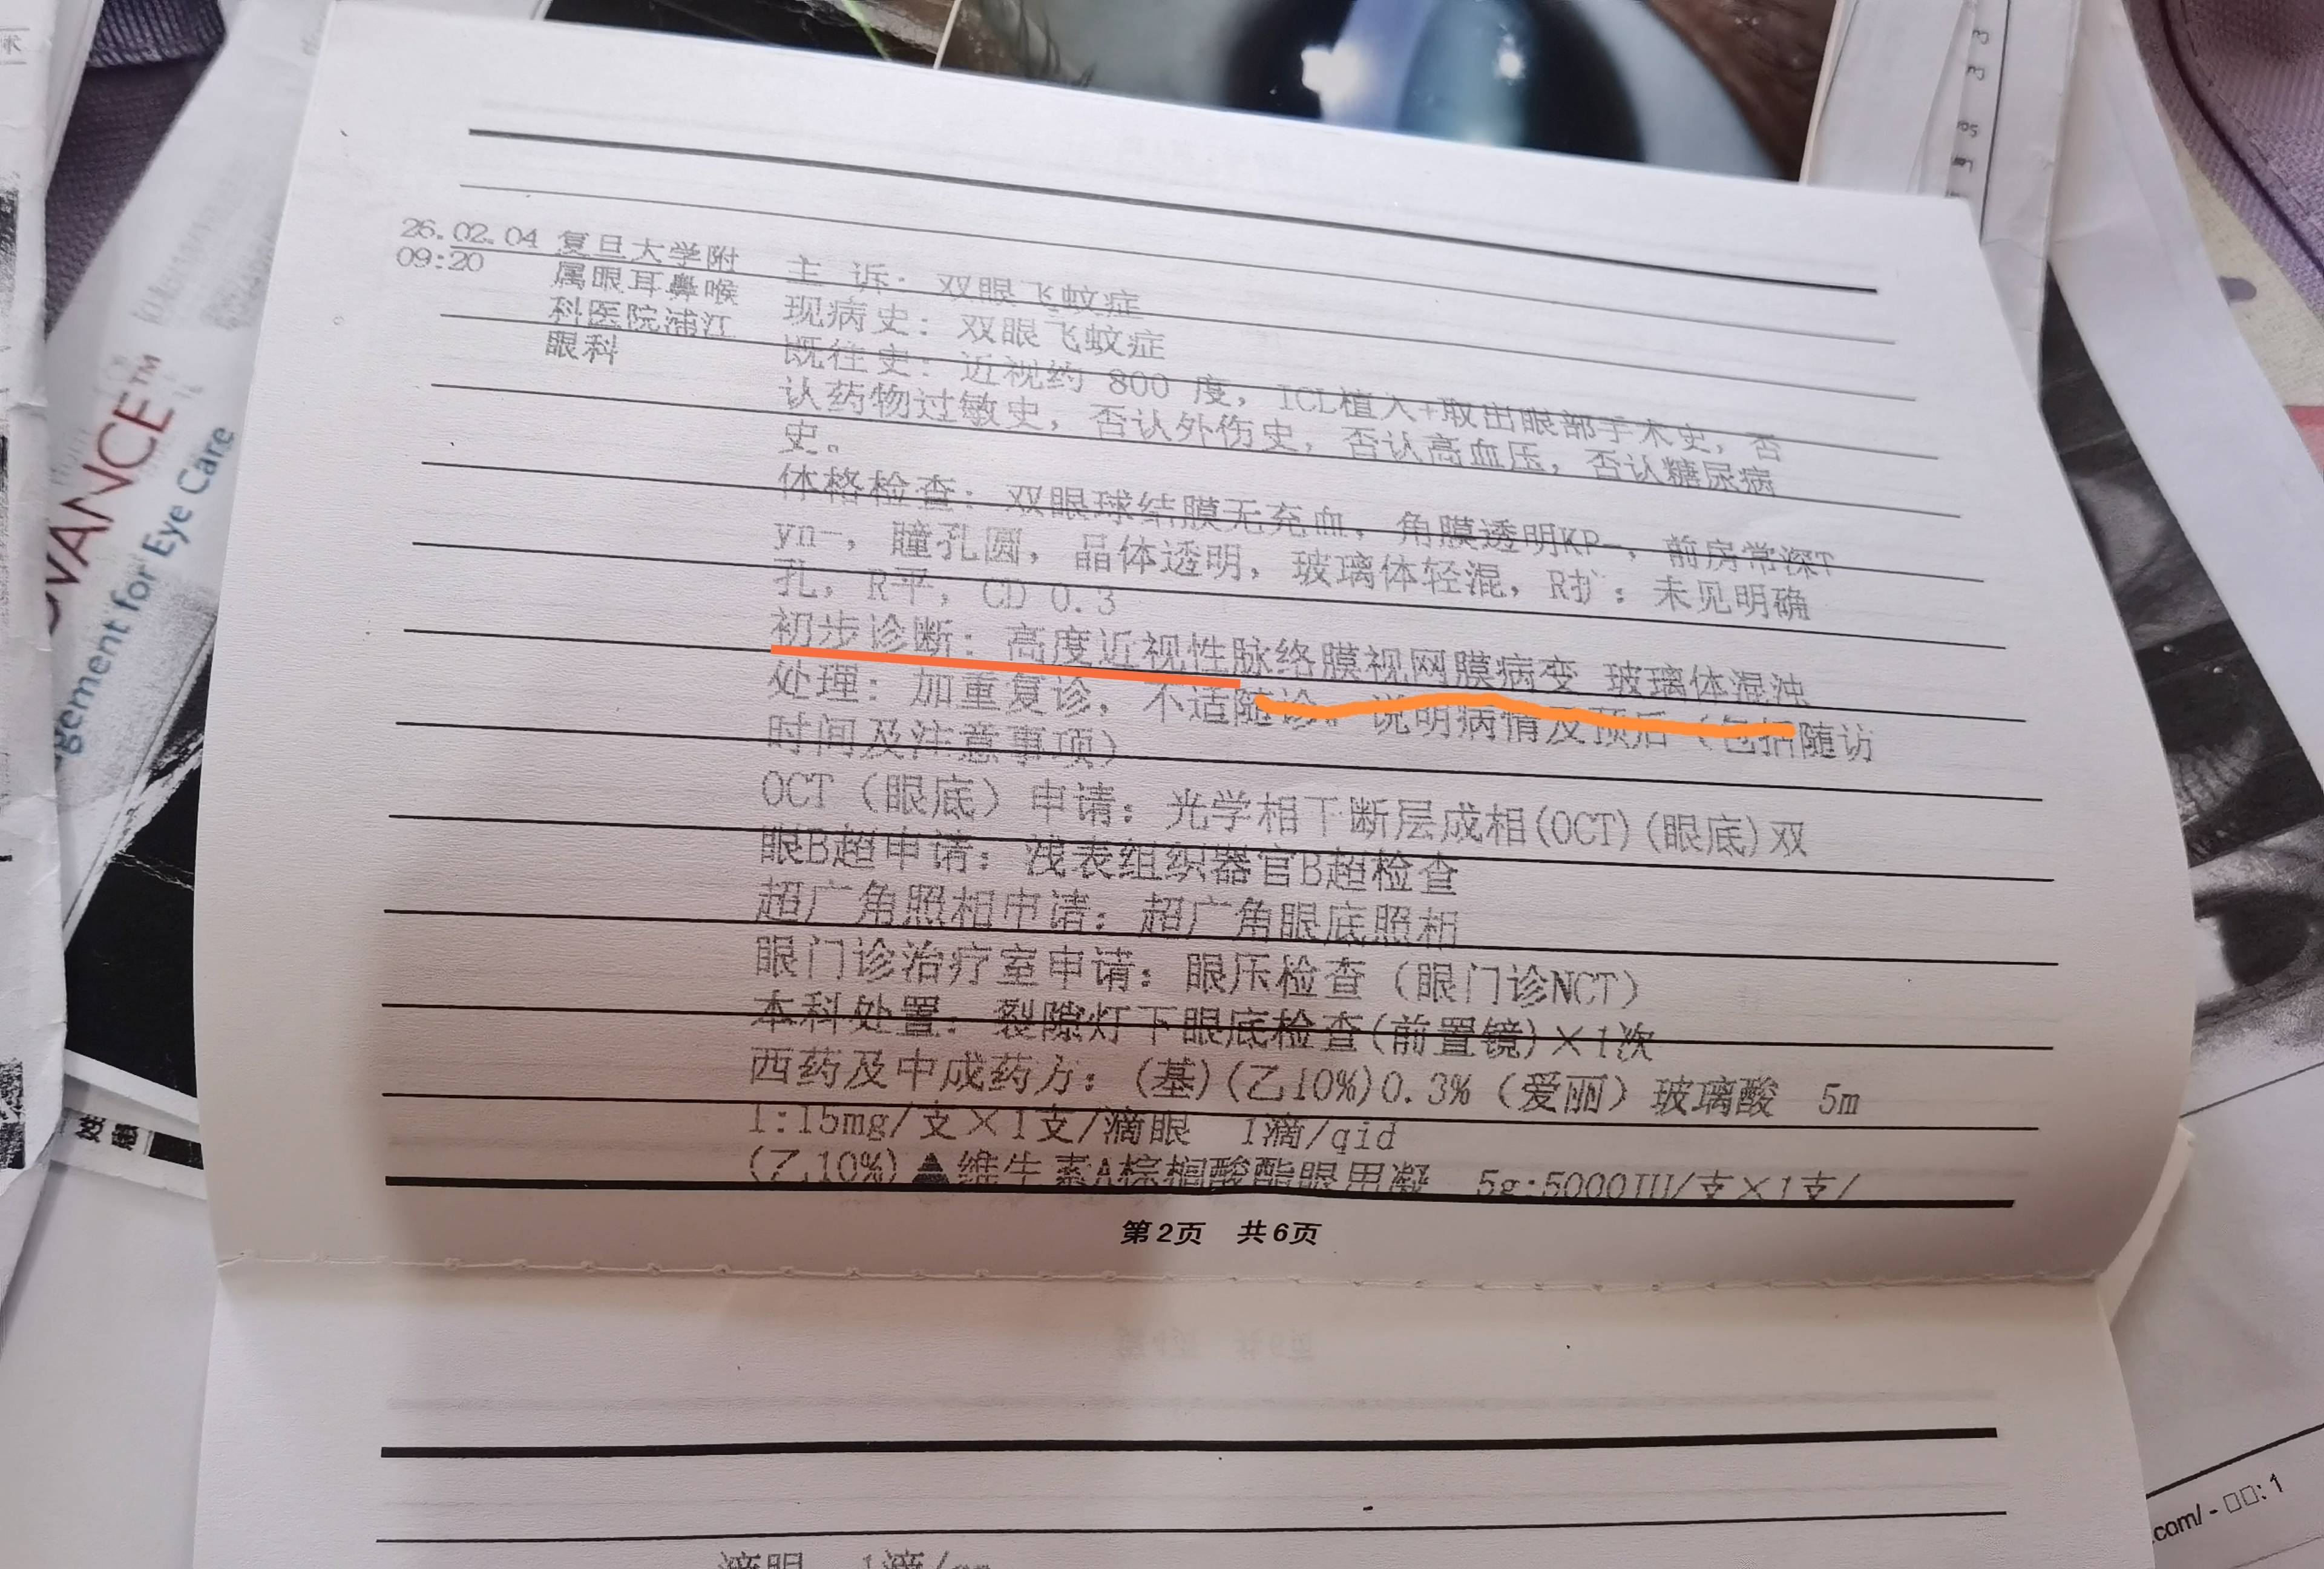 26.02.04 复旦大学附
09:20 属眼耳鼻喉
科医院浦江
眼科
主 诉: 双眼飞蚊症
现病史: 双眼飞蚊症
既往史: 近视约 800 度, ICL植入+取出眼部手术史, 否
认药物过敏史, 否认外伤史, 否认高血压, 否认糖尿病
史。
体格检查: 双眼球结膜无充血, 角膜透明KP-, 前房常深T
yn-, 瞳孔圆, 晶体透明, 玻璃体轻混, R扩: 未见明确
孔, R平, CD 0.3
初步诊断: 高度近视性脉络膜视网膜病变 玻璃体混浊
处理: 加重复诊, 不适随诊。 说明病情及预后(包括随访
时间及注意事项)
OCT(眼底) 申请: 光学相干断层成相(OCT)(眼底)双
眼B超申请: 浅表组织器官B超检查
超广角照相申请: 超广角眼底照相
眼门诊治疗室申请: 眼压检查(眼门诊NCT)
本科处置: 裂隙灯下眼底检查(前置镜)×1次
西药及中成药方: (基)(乙10%)0.3%(爱丽)玻璃酸 5m
l:15mg/支×1支/滴眼 1滴/qid
(乙10%)▲维生素A棕榈酸酯眼用凝 5g:5000IU/支×1支/
第2页 共6页
滴眼 1滴/
VANCE™
gement for Eye Care
.com/ - □□: 1